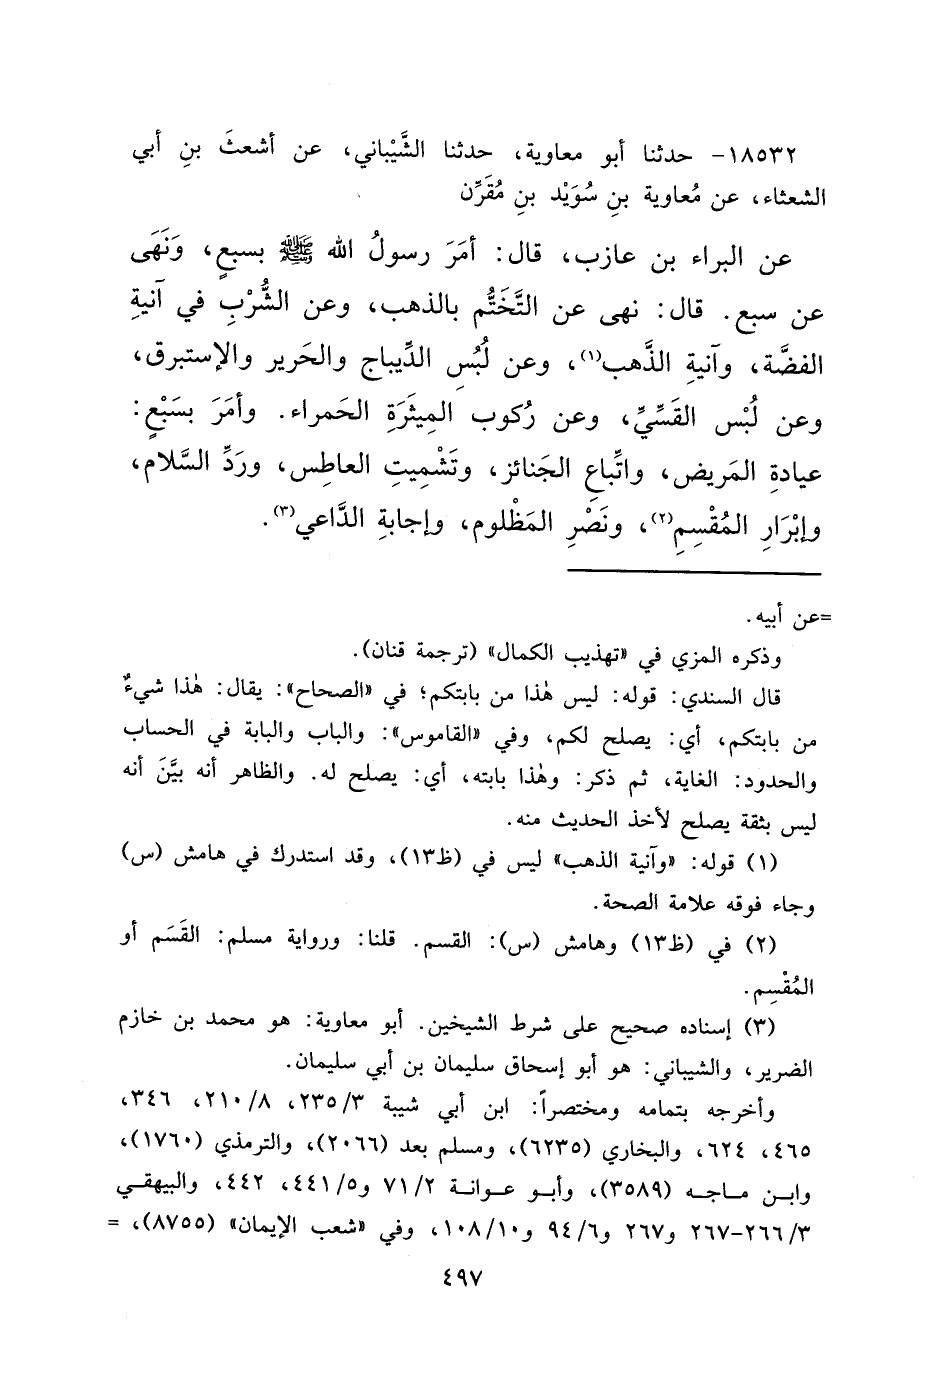 ١٨٥٣٢- حدثنا أبو معاوية، حدثنا الشَّيْباني، عن أشعثَ بنِ أبي
الشعثاء، عن مُعاوية بنِ سُوَيْد بنِ مُقَرِّن
عن البراء بن عازب، قال: أمَرَ رسولُ الله ﷺ بسبعٍ، ونَهَى
عن سبع. قال: نهى عن التَّخَتُّم بالذهب، وعن الشُّرْبِ في آنيةِ
الفضَّة، وآنيةِ الذَّهب(١)، وعن لُبْسِ الدِّيباج والحَرير والإستبرق،
وعن لُبْس القَسِّيِّ، وعن رُكوب المِيثَرَةِ الحَمراء. وأمَرَ بسَبْعٍ:
عيادةِ المَريض، واتِّباعِ الجَنائز، وتَشْمِيتِ العاطِس، وردِّ السَّلام،
وإبْرَارِ المُقْسِمِ(٢)، ونَصْرِ المَظْلوم، وإجابةِ الدَّاعي(٣).
=عن أبيه.
وذكره المزي في «تهذيب الكمال» (ترجمة قنان).
قال السندي: قوله: ليس هٰذا من بابتكم؛ في «الصحاح»: يقال: هٰذا شيءٌ
من بابتكم، أي: يصلح لكم، وفي «القاموس»: والباب والبابة في الحساب
والحدود: الغاية، ثم ذكر: وهٰذا بابته، أي: يصلح له. والظاهر أنه بيَّنَ أنه
ليس بثقة يصلح لأخذ الحديث منه.
(١) قوله: «وآنية الذهب» ليس في (ظ١٣)، وقد استدرك في هامش (س)
وجاء فوقه علامة الصحة.
(٢) في (ظ١٣) وهامش (س): القسم. قلنا: ورواية مسلم: القَسَم أو
المُقْسِم.
(٣) إسناده صحيح على شرط الشيخين. أبو معاوية: هو محمد بن خازم
الضرير، والشيباني: هو أبو إسحاق سليمان بن أبي سليمان.
وأخرجه بتمامه ومختصراً: ابن أبي شيبة ٢٣٥/٣، ٢١٠/٨، ٣٤٦،
٤٦٥، ٦٢٤، والبخاري (٦٢٣٥)، ومسلم بعد (٢٠٦٦)، والترمذي (١٧٦٠)،
وابن ماجه (٣٥٨٩)، وأبو عوانة ٧١/٢ و٤٤١/٥، ٤٤٢، والبيهقي
٢٦٦/٣-٢٦٧ و٢٦٧ و٩٤/٦ و١٠٨/١٠، وفي «شعب الإيمان» (٨٧٥٥)، =
٤٩٧